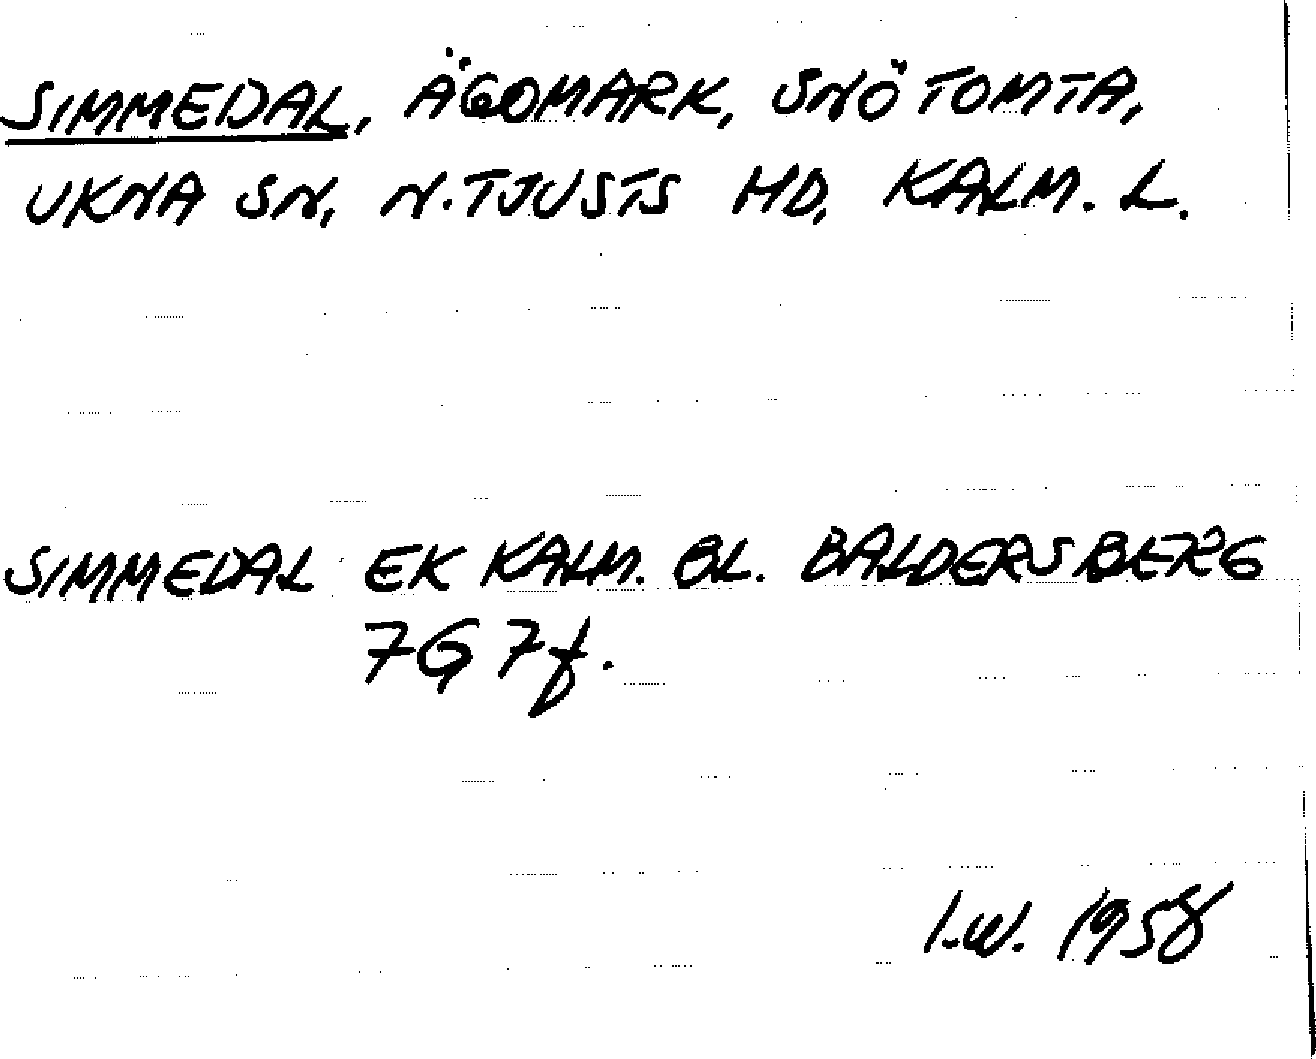 SIMMEDAL, ÄGOMARK, SNÖTOMTA,
UKNA SN, N. TJUSTS HD, KALM. L.
SIMMEDAL EK KALM. BL. BALDERSBERG
7G 7f.
I.W. 1958